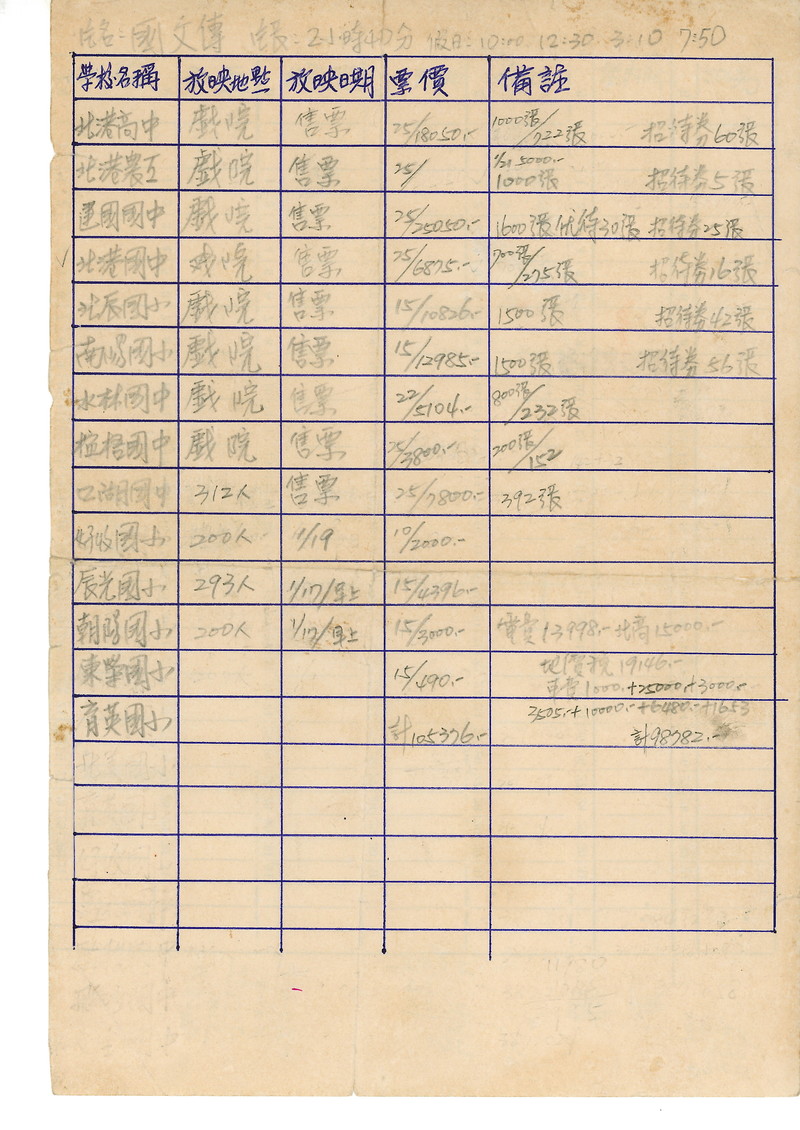 片名：國父傳 片長：2小時40分 假日：10:00 12:30 3:10 7:50
學校名稱 放映地點 放映日期 票價 備註
北港高中 戲院 售票 25/18050.- 1000張/722張 招待券60張
北港農工 戲院 售票 25/ 1/21 5000.- 1000張 招待券5張
建國國中 戲院 售票 25/25050.- 1600張 优待30張 招待券25張
北港國中 戲院 售票 25/6875.- 700張/275張 招待券16張
北辰國小 戲院 售票 15/10826.- 1500張 招待券42張
南陽國小 戲院 售票 15/12985.- 1500張 招待券56張
水林國中 戲院 售票 22/5104.- 800張/232張
戲院 售票 25/3800.- 200張/152
口湖國中 312人 售票 25/7800.- 392張
好收國小 200人 1/19 10/2000.-
辰光國小 293人 1/17/早上 15/4396.-
朝陽國小 200人 1/17/早上 15/3000.- 電費13998.- 15000.-
東榮國小 15/490.- 地價稅19146.-
車費1000.+25000.+3000.-
育英國小 2505.-+10000.-+6480.-+1653
計105376.- 計98782.-